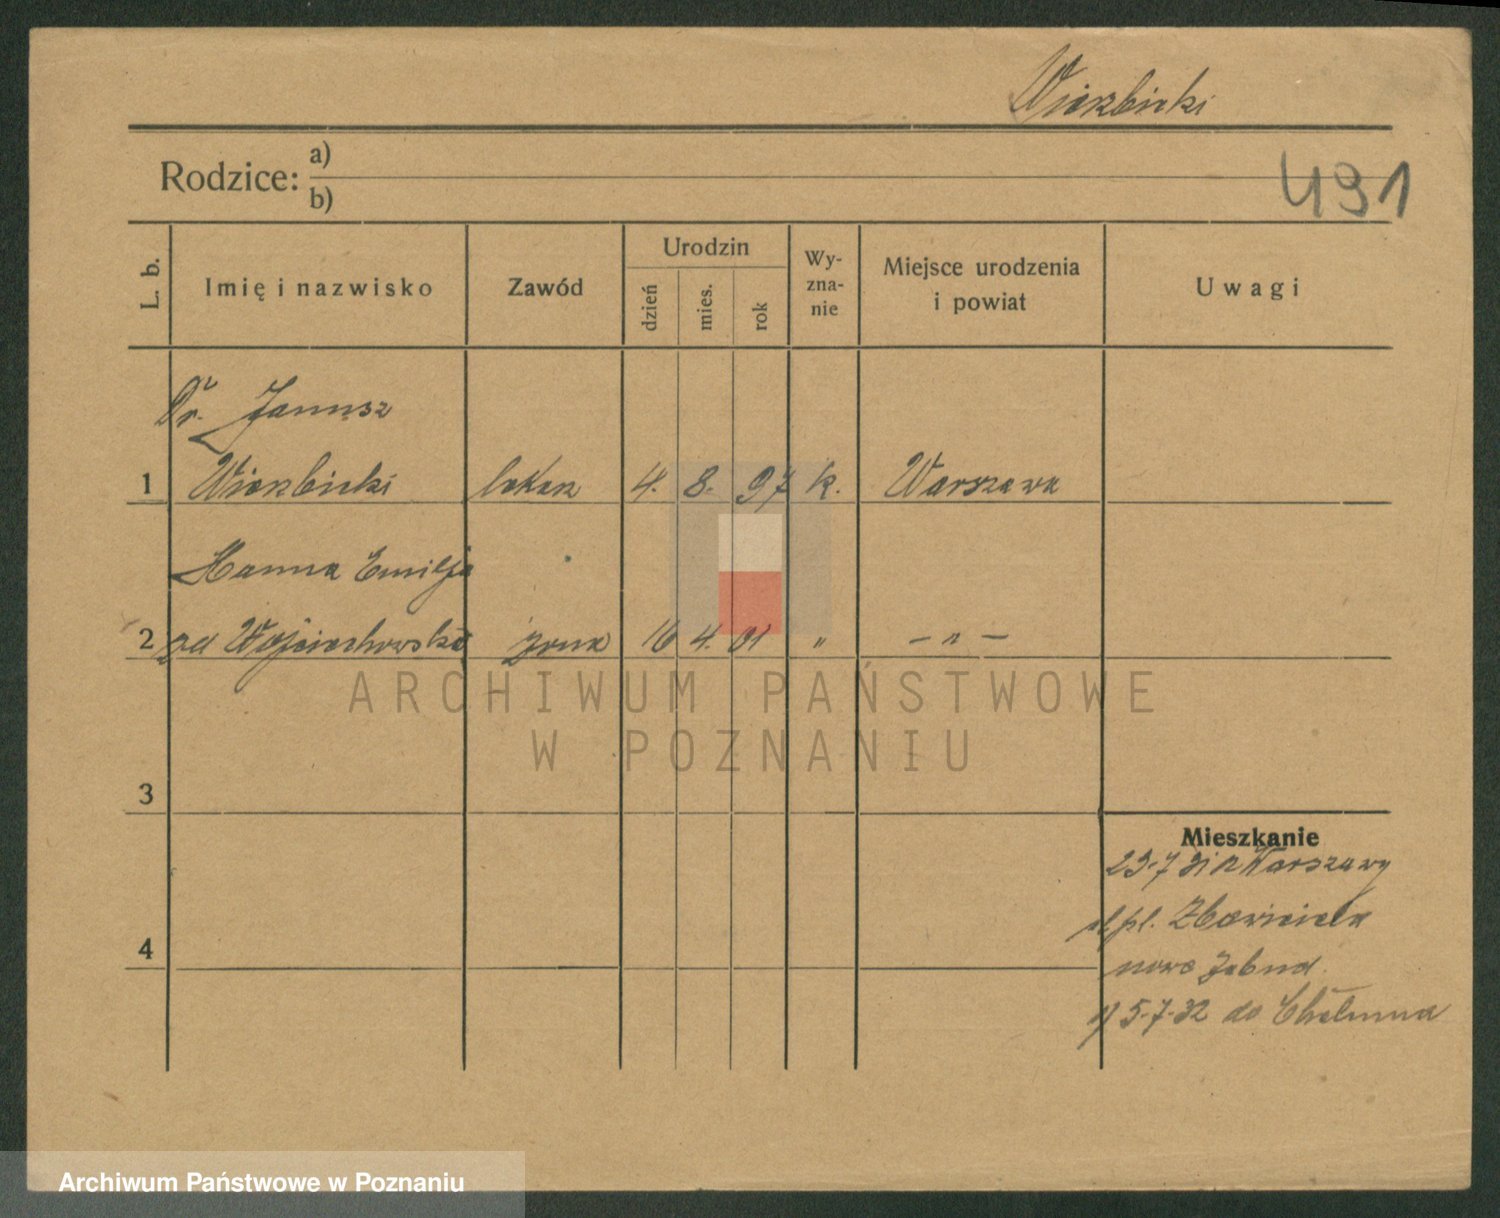 Wierzbicki
Rodzice: a)
b)
491
L. b.
Imię i nazwisko
Zawód
Urodzin
dzień
mies.
rok
Wy-
zna-
nie
Miejsce urodzenia
i powiat
Uwagi
Dr. Janusz
1 Wierzbicki lekarz 4. 8. 97 k. Warszawa
Hanna Emilja
2 zd Wojciechowska żona 16 4. 01 „ — „ —
3
4
Mieszkanie
23-7 31 z Warszawy
pl. Zbawiciela
5-7-32 do Chełmna
ARCHIWUM PAŃSTWOWE
W POZNANIU
Archiwum Państwowe w Poznaniu